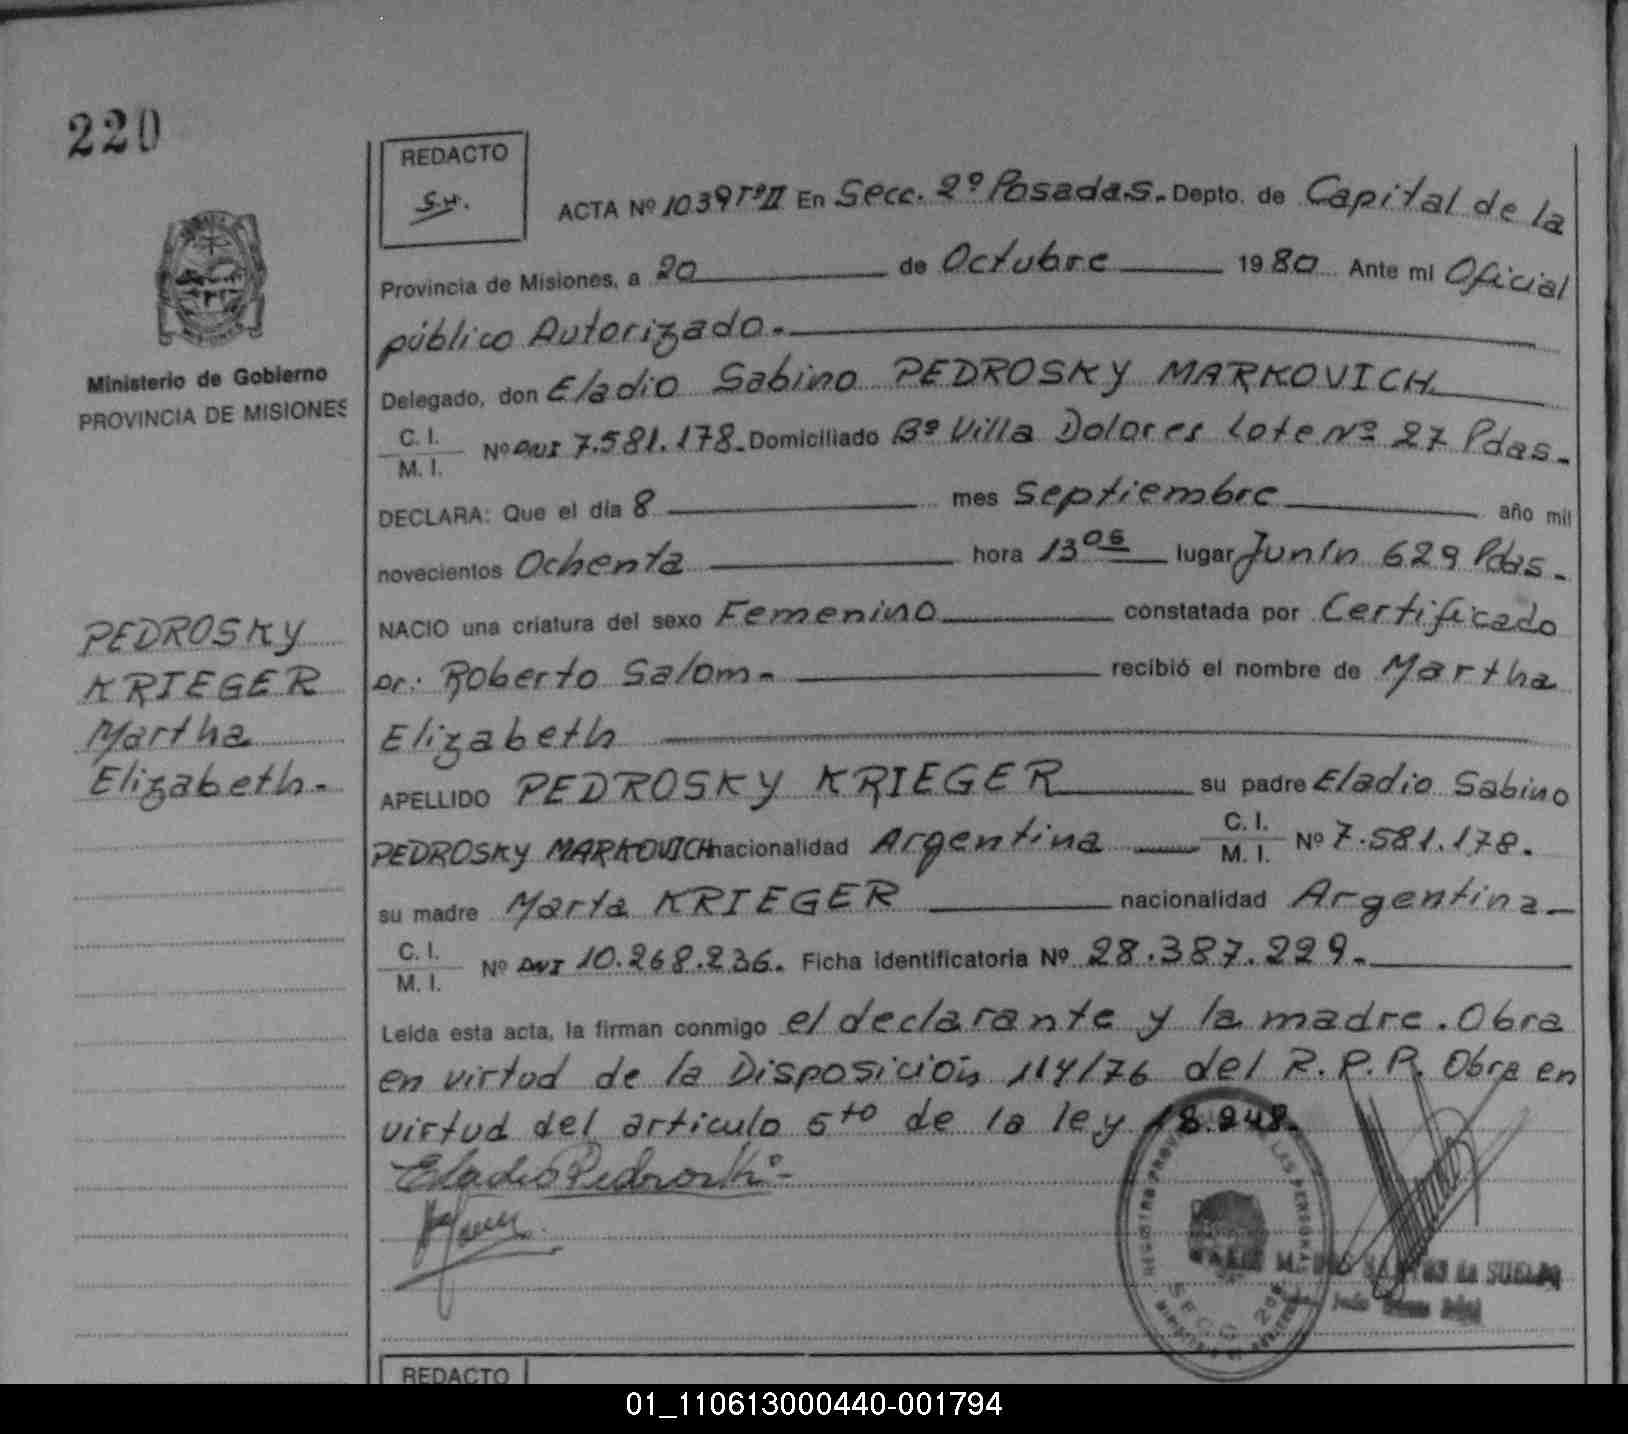 220
REDACTO
S.H.
ACTA Nº 1039 Tº II En Secc. 2º Posadas. Depto. de Capital de la
Provincia de Misiones, a 20 de Octubre 1980 Ante mi Oficial
público Autorizado.
Ministerio de Gobierno
PROVINCIA DE MISIONES
Delegado, don Eladio Sabino PEDROSKY MARKOVICH
C. I.
M. I.
Nº DNI 7.581.178. Domiciliado Bº Villa Dolores Lote Nº 27 Pdas.
DECLARA: Que el día 8 mes Septiembre año mil
novecientos Ochenta hora 13 05 lugar Junín 629 Pdas.
NACIO una criatura del sexo Femenino constatada por Certificado
Dr: Roberto Salom. recibió el nombre de Martha
Elizabeth
PEDROSKY
KRIEGER
Martha
Elizabeth.
APELLIDO PEDROSKY KRIEGER su padre Eladio Sabino
PEDROSKY MARKOVICH nacionalidad Argentina C. I. M. I. Nº 7.581.178.
su madre Marta KRIEGER nacionalidad Argentina
C. I.
M. I.
Nº DNI 10.268.236. Ficha Identificatoria Nº 28.387.229.
Leída esta acta, la firman conmigo el declarante y la madre. Obra
en virtud de la Disposición 114/76 del R.P.P. Obra en
virtud del articulo 5to de la ley 18.248.
Eladio Pedroski
SECC 2da
REDACTO
01_110613000440-001794